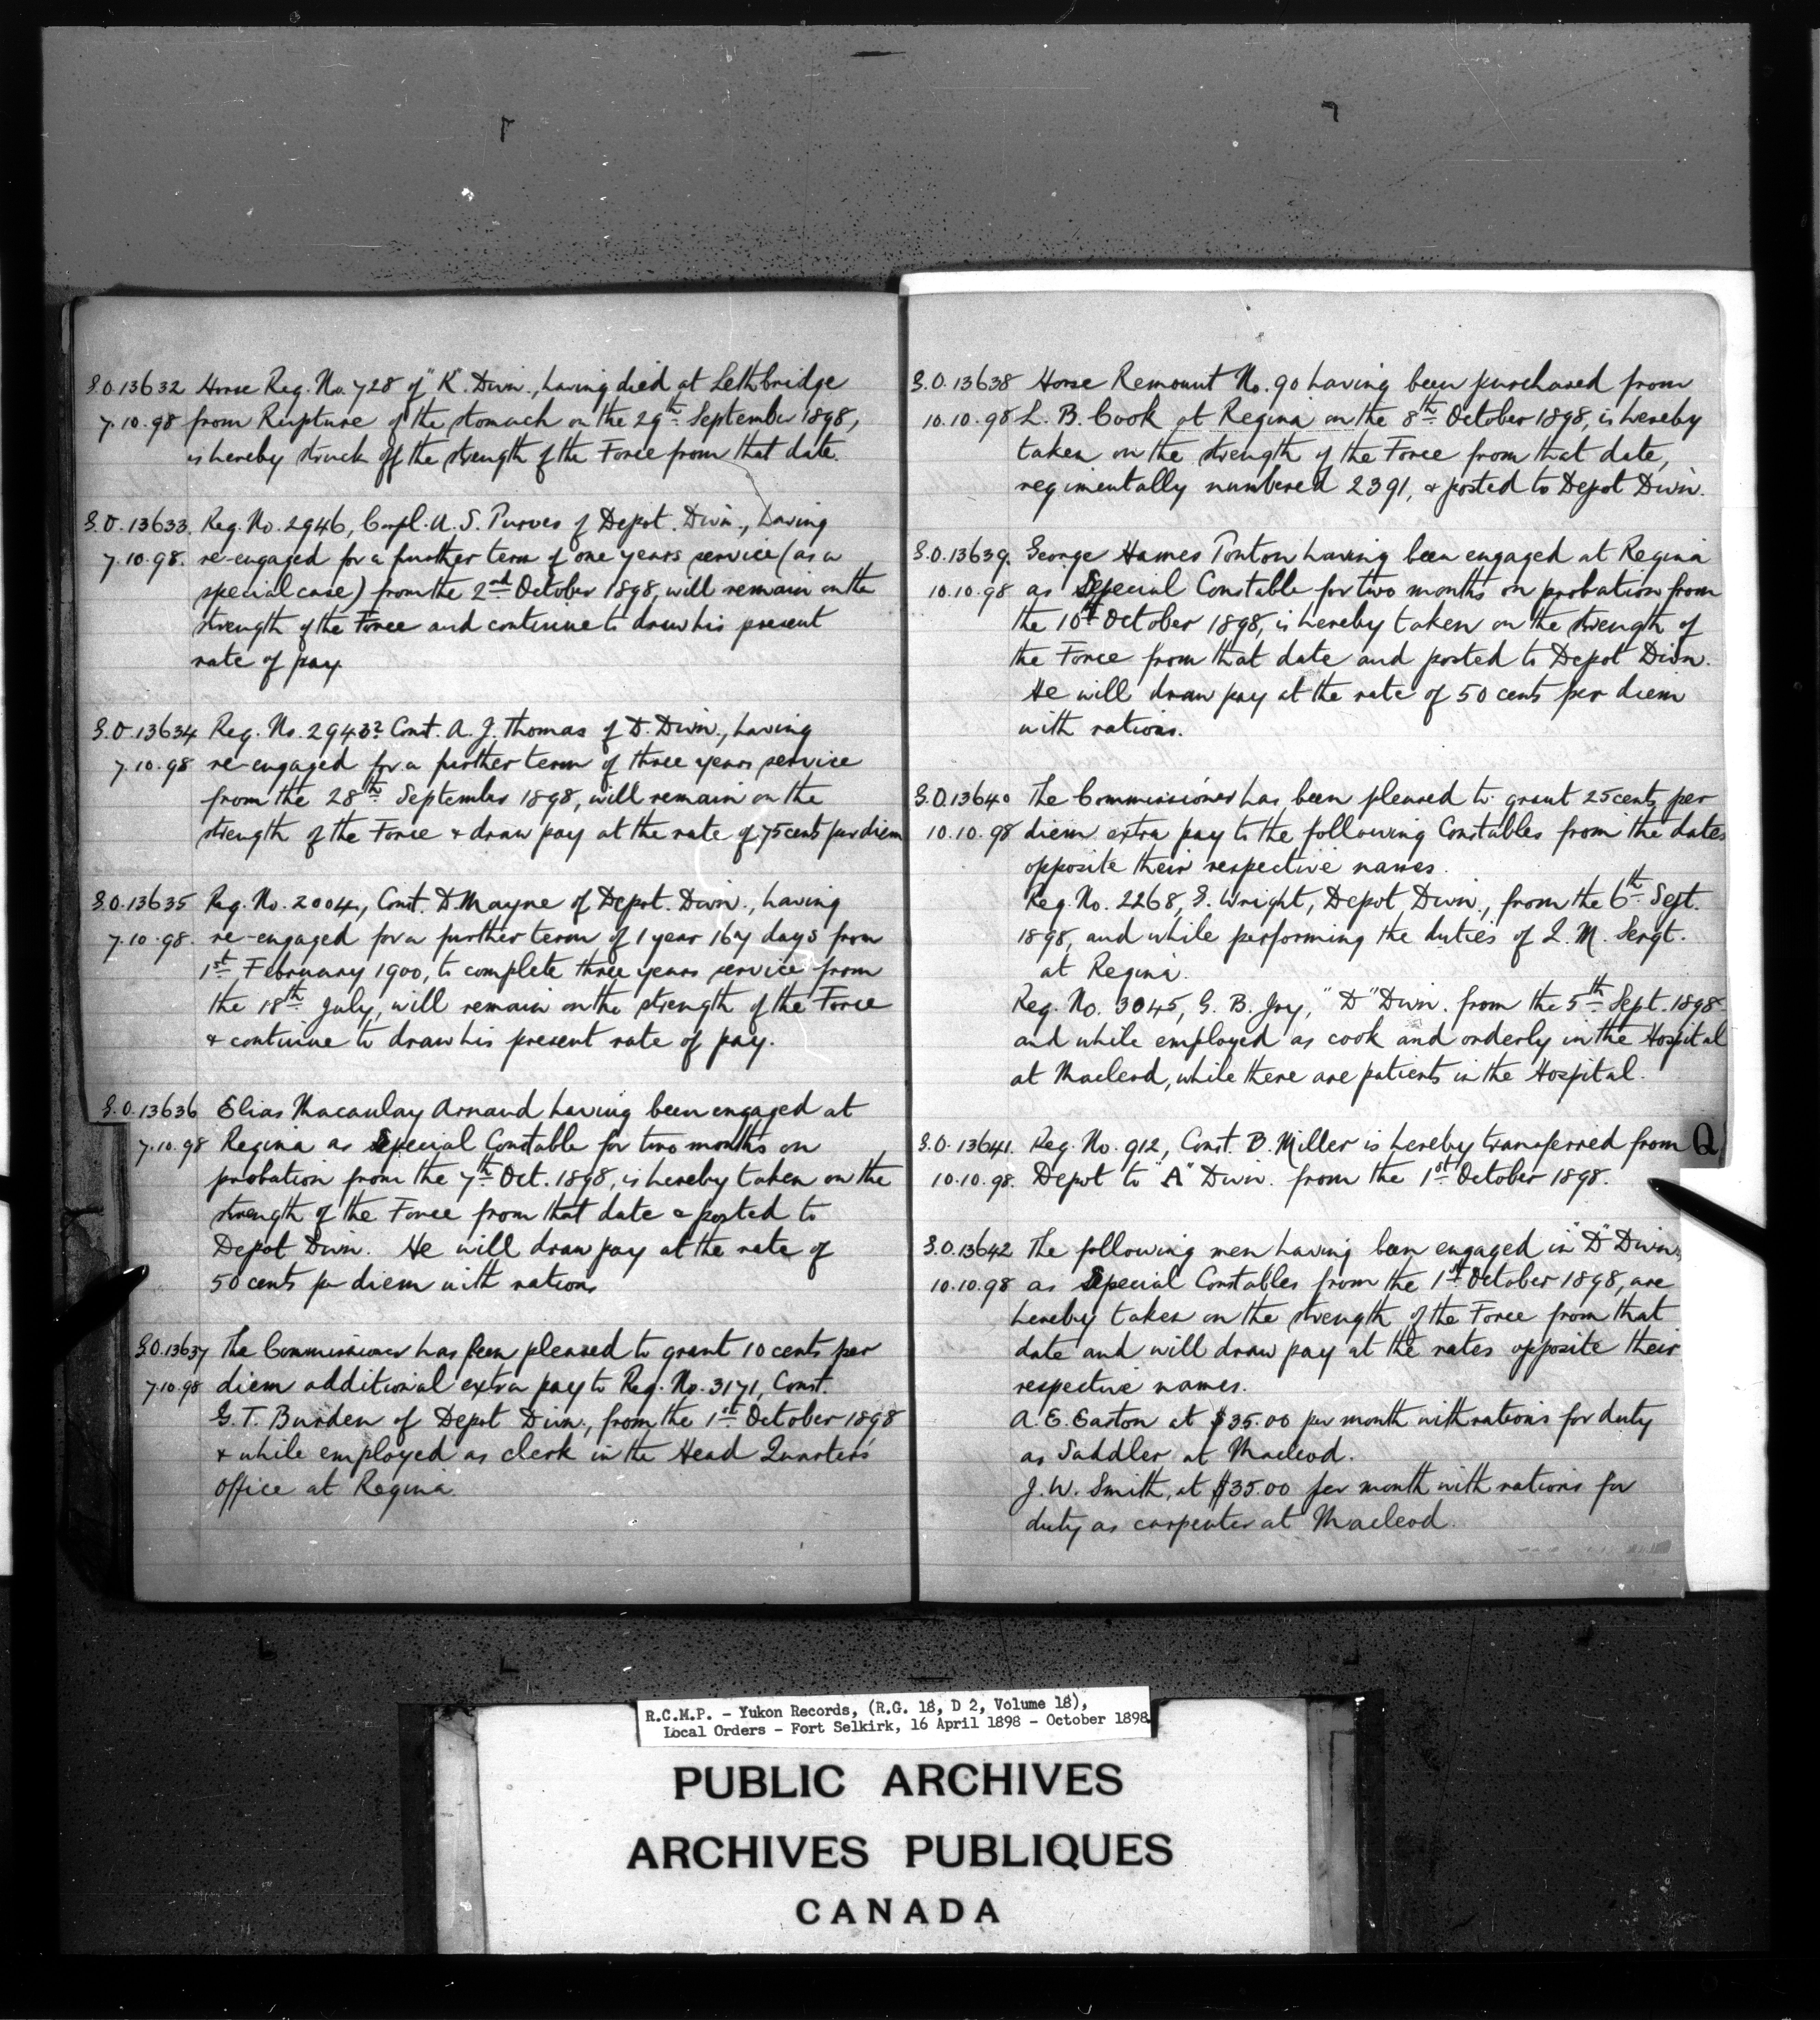 G.O. 13632 Horse Reg. No. 728 of "K" Divn., having died at Lethbridge
7.10.98 from Rupture of the stomach on the 29th September 1898,
is hereby struck off the strength of the Force from that date.
G.O. 13633. Reg. No. 2946, Corpl. A. S. Purves of Depot. Divn., having
7.10.98. re-engaged for a further term of one years service (as a
special case) from the 2nd October 1898, will remain on the
strength of the Force and continue to draw his present
rate of pay.
G.O. 13634 Reg. No. Const. A. J. Thomas of D. Divn., having
7.10.98 re-engaged for a further term of three years service
from the 28th September 1898, will remain on the
strength of the Force & draw pay at the rate of 75 cents per diem
G.O. 13635 Reg. No. 2004, Const. D. Mayne of Depot. Divn., having
7.10.98. re-engaged for a further term of 1 year 167 days from
1st February 1900, to complete three years service from
the 18th July, will remain on the strength of the Force
& continue to draw his present rate of pay.
G.O. 13636 Elias Macaulay Arnaud having been engaged at
7.10.98 Regina as Special Constable for two months on
probation from the 7th Oct. 1898, is hereby taken on the
strength of the Force from that date & posted to
Depot Divn. He will draw pay at the rate of
50 cents per diem with rations
G.O. 13637 The Commissioner has been pleased to grant 10 cents per
7.10.98 diem additional extra pay to Reg. No. 3171, Const.
G. T. Burden of Depot Divn., from the 1st October 1898
& while employed as clerk in the Head Quarters
Office at Regina
G.O. 13638 Horse Remount No. 90 having been purchased from
10.10.98 L. B. Cook at Regina on the 8th October 1898, is hereby
taken on the strength of the Force from that date,
regimentally numbered 2391, & posted to Depot Divn.
G.O. 13639. George Hames Ponton having been engaged at Regina
10.10.98 as Special Constable for two months on probation from
the 10th October 1898, is hereby taken on the strength of
the Force from that date and posted to Depot Divn.
He will draw pay at the rate of 50 cents per diem
with rations.
G.O. 13640 The Commissioner has been pleased to grant 25 cents per
10.10.98 diem extra pay to the following Constables from the dates
opposite their respective names.
Reg. No. 2268, G. Wright, Depot Divn., from the 6th Sept.
1898, and while performing the duties of Q. M. Sergt.
at Regina.
Reg. No. 3045, G. B. Joy, "D" Divn. from the 5th Sept. 1898
and while employed as cook and orderly in the Hospital
at Macleod, while there are patients in the Hospital.
G.O. 13641. Reg. No. 912, Const. B. Miller is hereby transferred from
10.10.98. Depot to "A" Divn. from the 1st October 1898.
Q
G.O. 13642 The following men having been engaged in "D" Divn,
10.10.98 as Special Constables from the 1st October 1898, are
hereby taken on the strength of the Force from that
date and will draw pay at the rates opposite their
respective names.
A. E. Easton at $35.00 per month with rations for duty
as Saddler at Macleod.
J. W. Smith, at $35.00 per month with rations for
duty as carpenter at Macleod.
R.C.M.P. - Yukon Records, (R.G. 18, D 2, Volume 18),
Local Orders - Fort Selkirk, 16 April 1898 - October 1898
PUBLIC ARCHIVES
ARCHIVES PUBLIQUES
CANADA